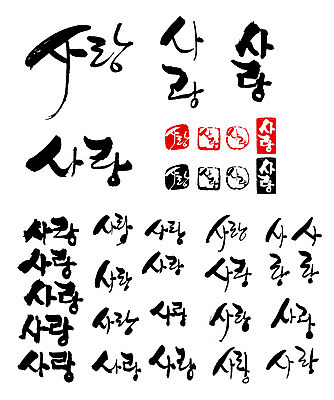 사랑
사
랑
사
랑
사랑
사랑 사랑 사랑 사랑
사랑 사랑 사랑 사랑
사랑 사랑 사랑 사랑 사 사
사랑 사랑 사랑 사랑 랑 랑
사랑
사랑 사랑 사랑 사랑 사랑
사랑 사랑 사랑 사랑 사랑